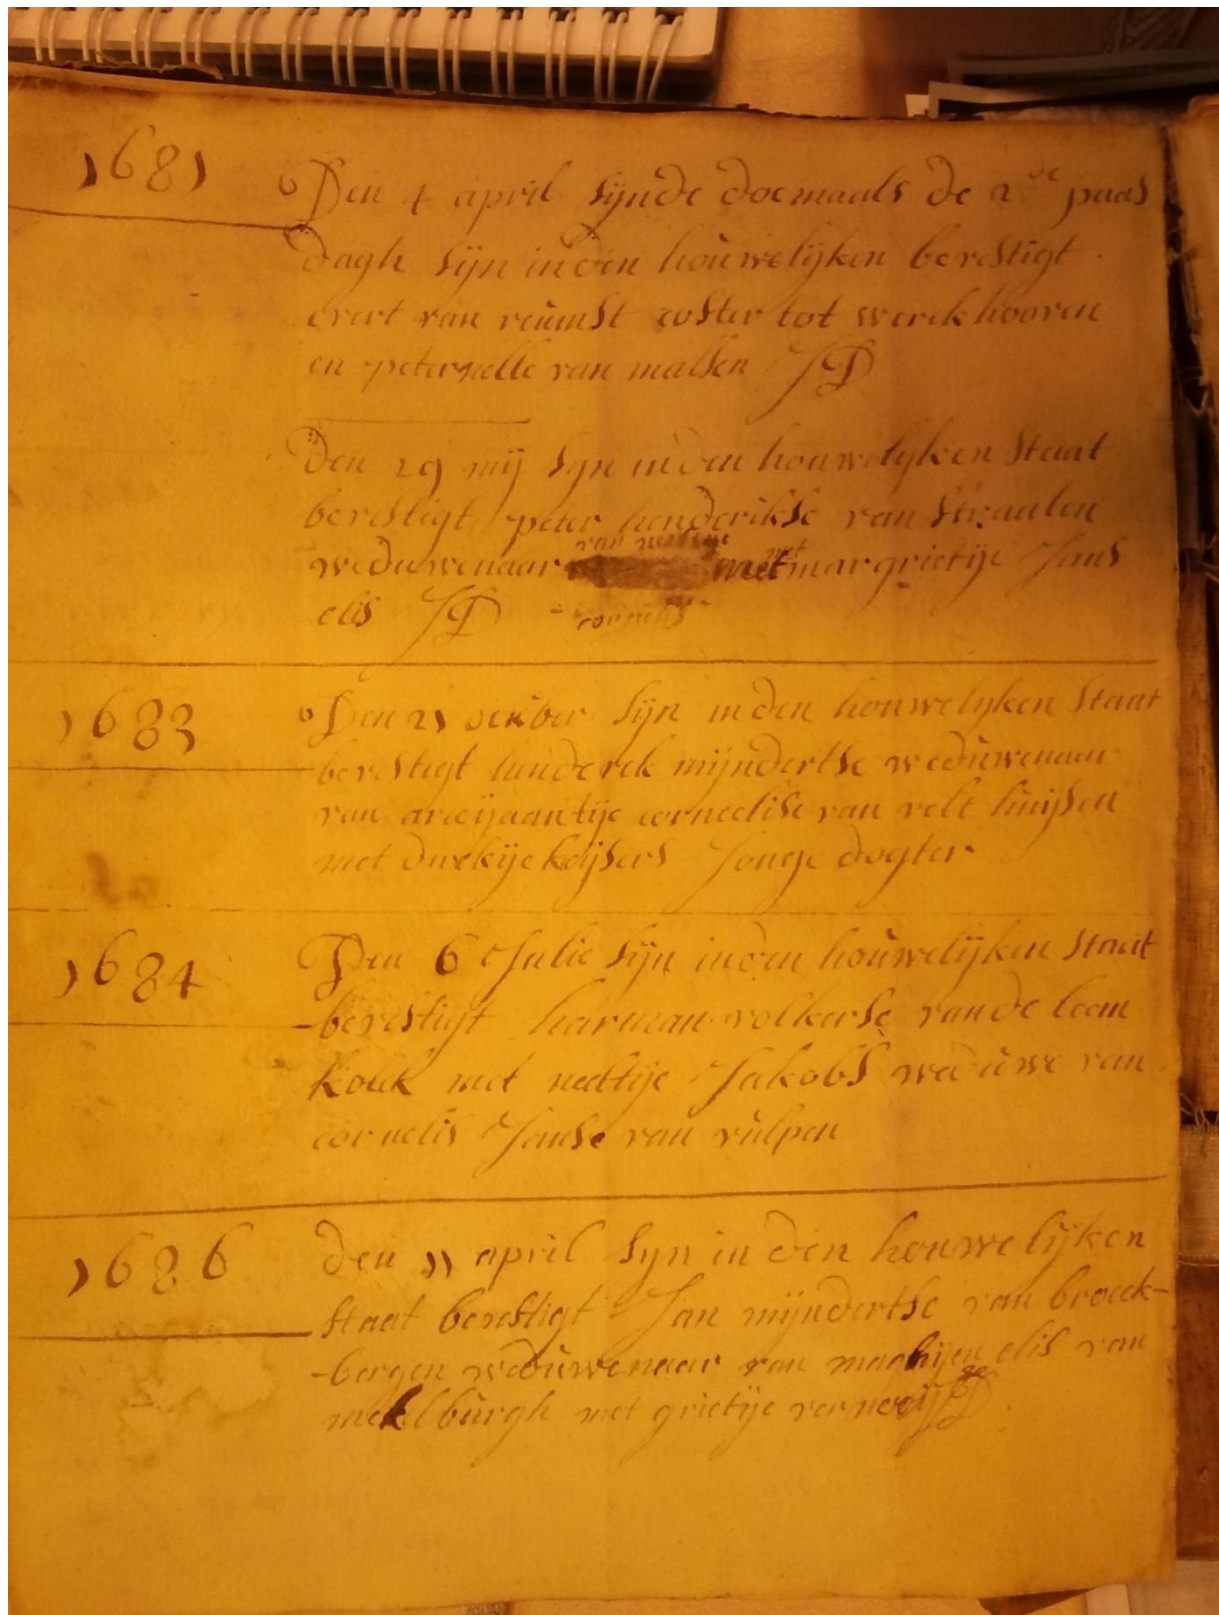 1681
Den 4 april sijnde doemaals de 2de paas
dagh sijn in den houwelijken bevestigt
evert van reumst coster tot werckhooven
en peternelle van malsen JD
den 29 mij syn in den houwelyken Staat
bevestigt peter henderikse van Straalen
van
weduwenaar met margrietije Jans
elis JD
1683
Den 21 october sijn in den houwelyken Staat
bevestigt henderck mijndertse weduwenaar
van areijaantije corneelise van velt huijsen
met dirckije keijsers Jonge dogter
1684
Den 6 Julie sijn in den houwelijken Staat
bevestigt harman volkerse van de leem
kolck met neeltije Jakobs weduwe van
cornelis Janse van vulpen
1686
den 11 april syn in den houwelijken
Staat bevestigt Jan mijndertse van broeck-
-bergen weduwenaar van maghijen elis van
mekelburgh met grietije vernooij JD